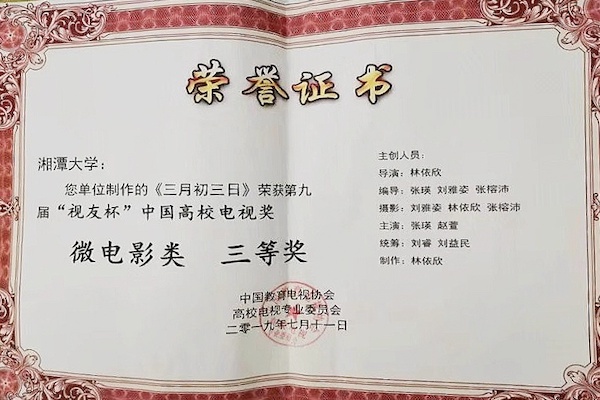 荣誉证书
湘潭大学：
您单位制作的《三月初三日》荣获第九
届“视友杯”中国高校电视奖
微电影类 三等奖
中国教育电视协会
高校电视专业委员会
二零一九年七月十一日
主创人员：
导演：林依欣
编导：张瑛 刘雅姿 张榕沛
摄影：刘雅姿 林依欣 张榕沛
主演：张瑛 赵萱
统筹：刘睿 刘益民
制作：林依欣